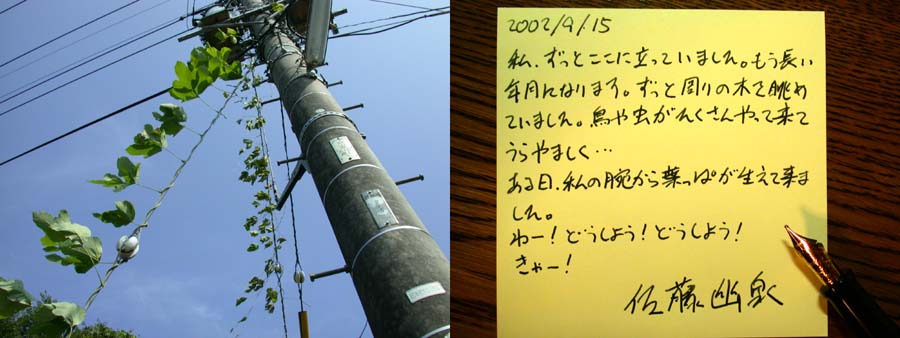 2002/9/15
私、ずっとここに立っていました。もう長い
年月になります。ずっと周りの木を眺め
ていました。鳥や虫がたくさんやって来て
うらやましく…
ある日、私の腕から葉っぱが生えて来ま
した。
わー！どうしよう！どうしよう！
きゃー！
佐藤幽泉